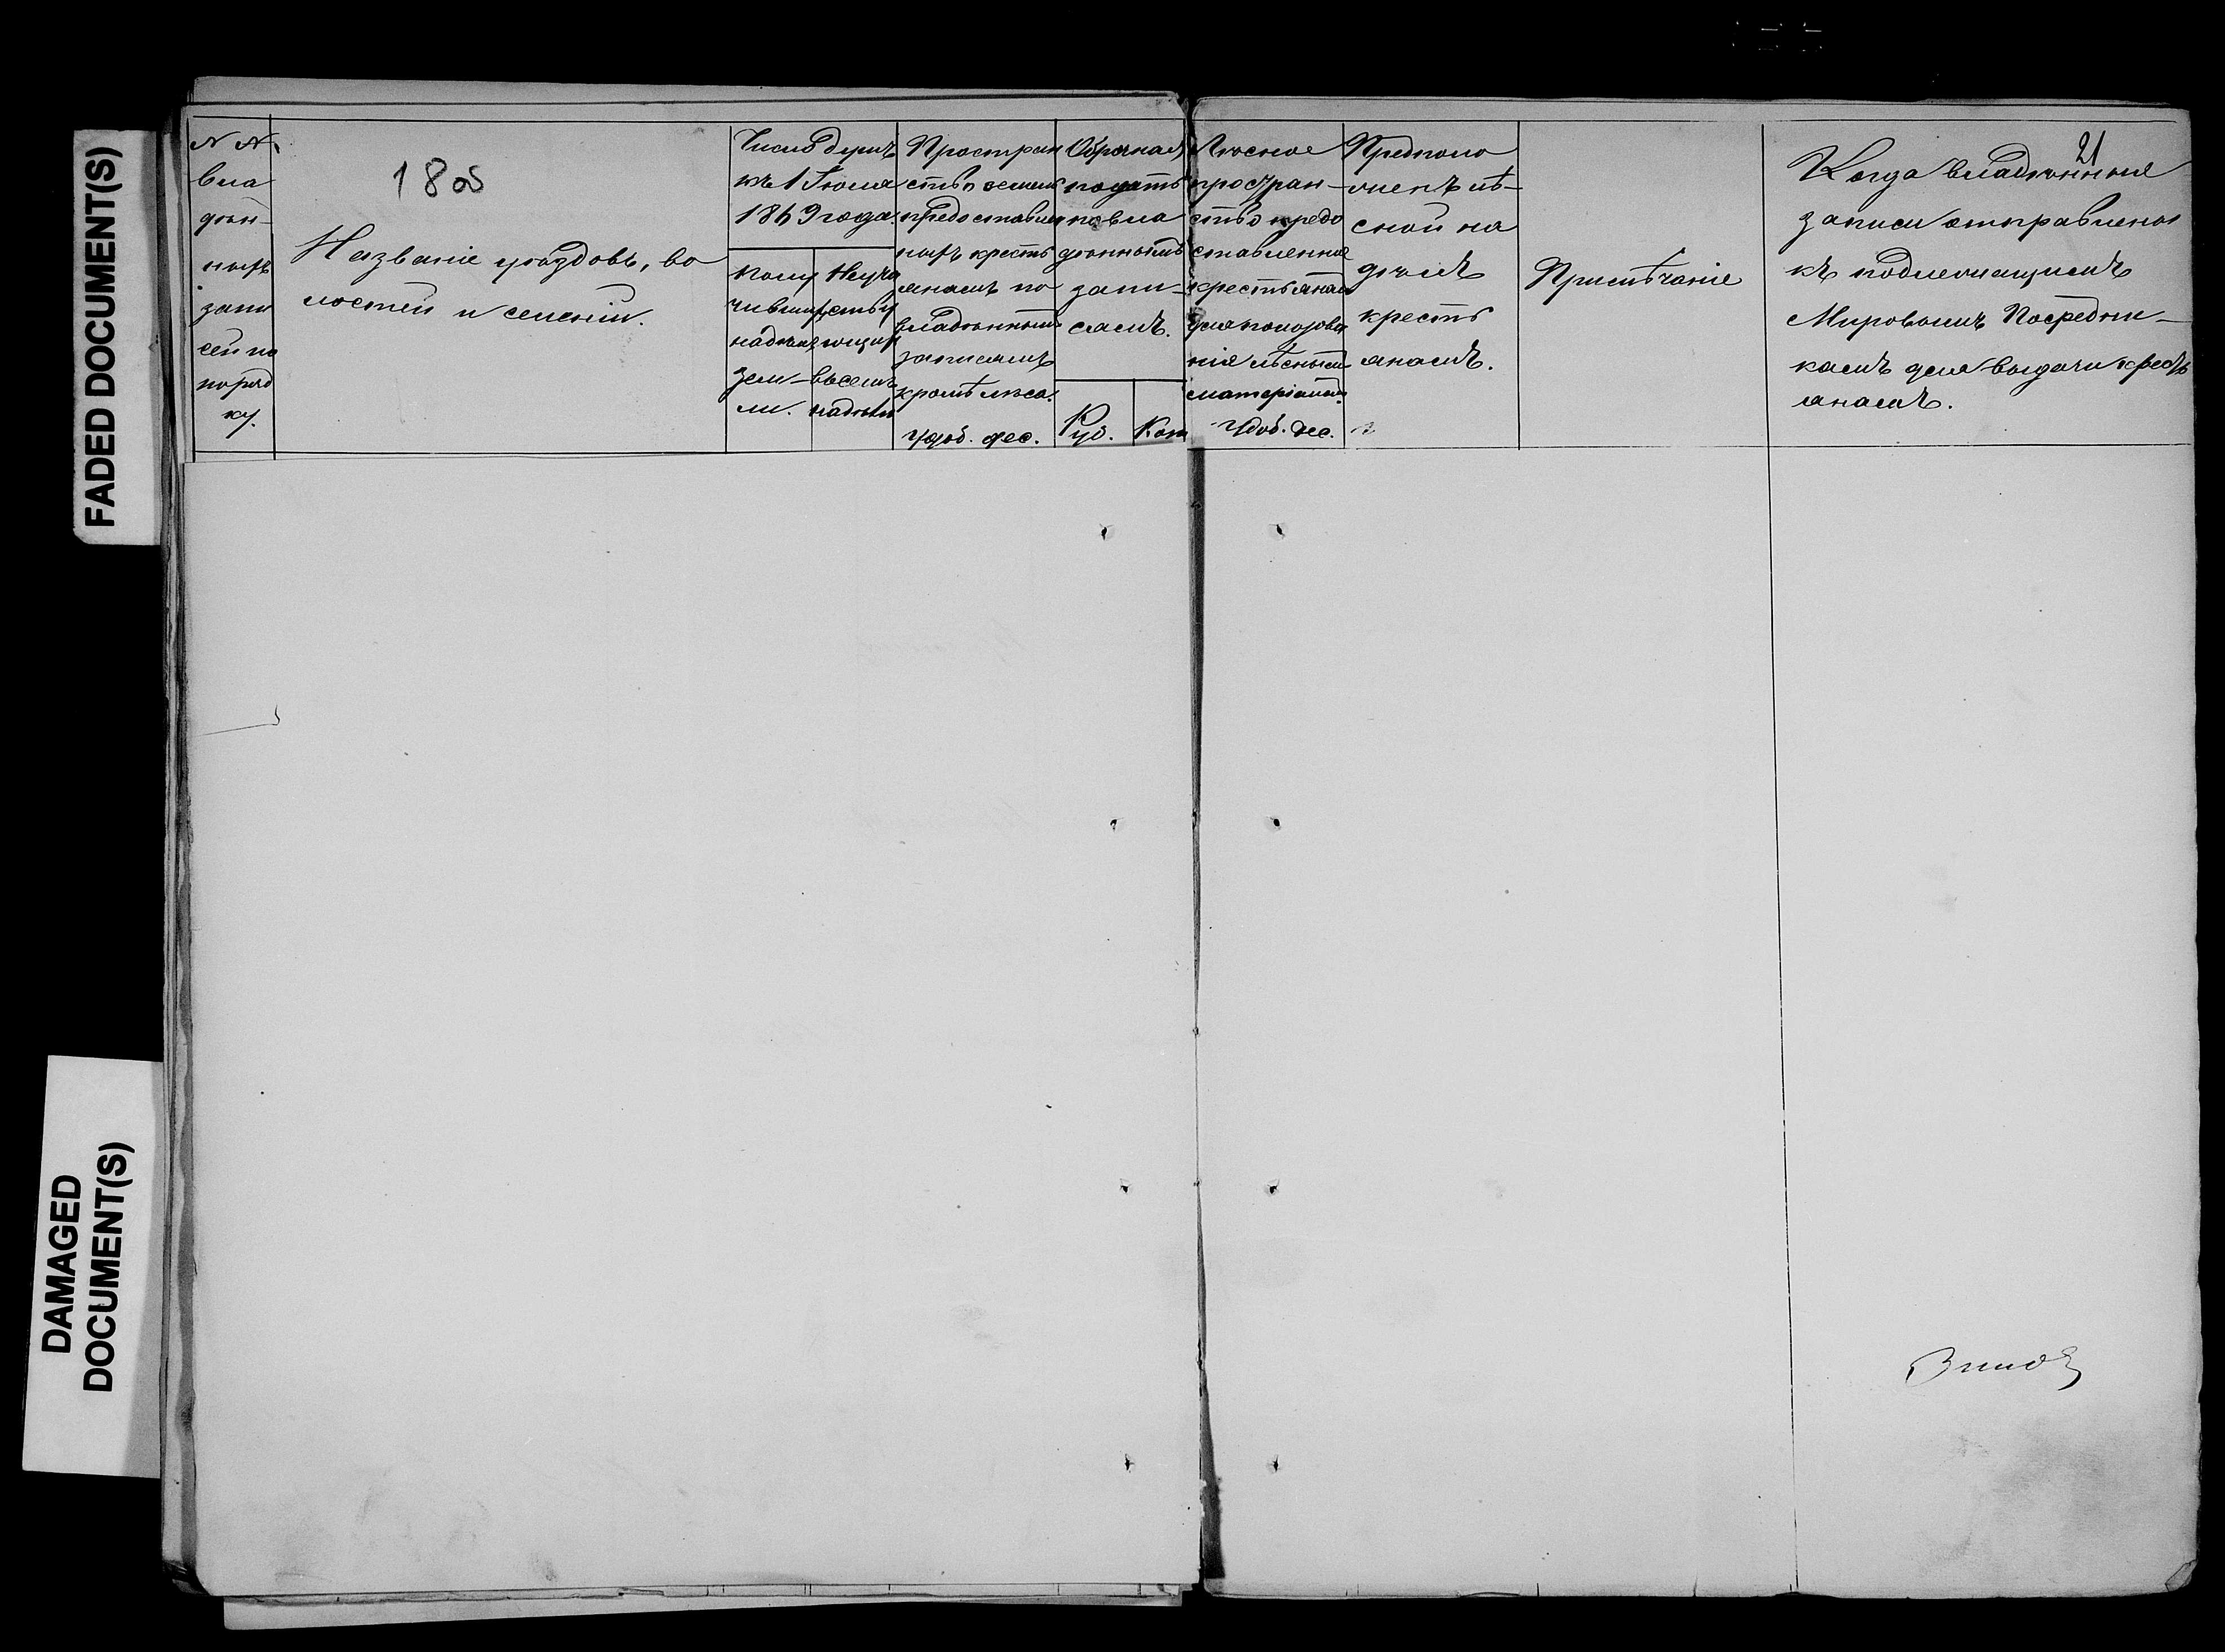 FADED DOCUMENT(S)
DAMAGED
DOCUMENT(S)
№№
вла
дѣн-
ныхъ
запи
сей по
поряд
ку.
Названіе уѣздовъ, во
лостей и селеній.
Число душъ
къ 1 Іюля
1869 года.
Полу
чивших
надѣлъ
зем-
ли.
Неуча
ствую
ющихъ
въ семъ
надѣлѣ
Простран
ство земель
предоставлен
ныхъ кресть
янамъ по
владѣннымъ
записямъ
кромѣ лѣса.
Удоб. дес.
Оброчная
подать
по вла
дѣннымъ
запи-
сямъ.
Руб.
Коп
Лѣсное
простран-
ство предо
ставленное
крестьянам
для пользова
нія лѣснымъ
матеріаломъ.
Удоб. дес.
Предполо
женъ лѣ-
сной на
дѣлъ
кресть
янамъ.
Примѣчаніе
21
Когда владѣнныя
записи отправлены
къ подлежащимъ
Мировымъ Посредни-
камъ для выдачи кресть
янамъ.